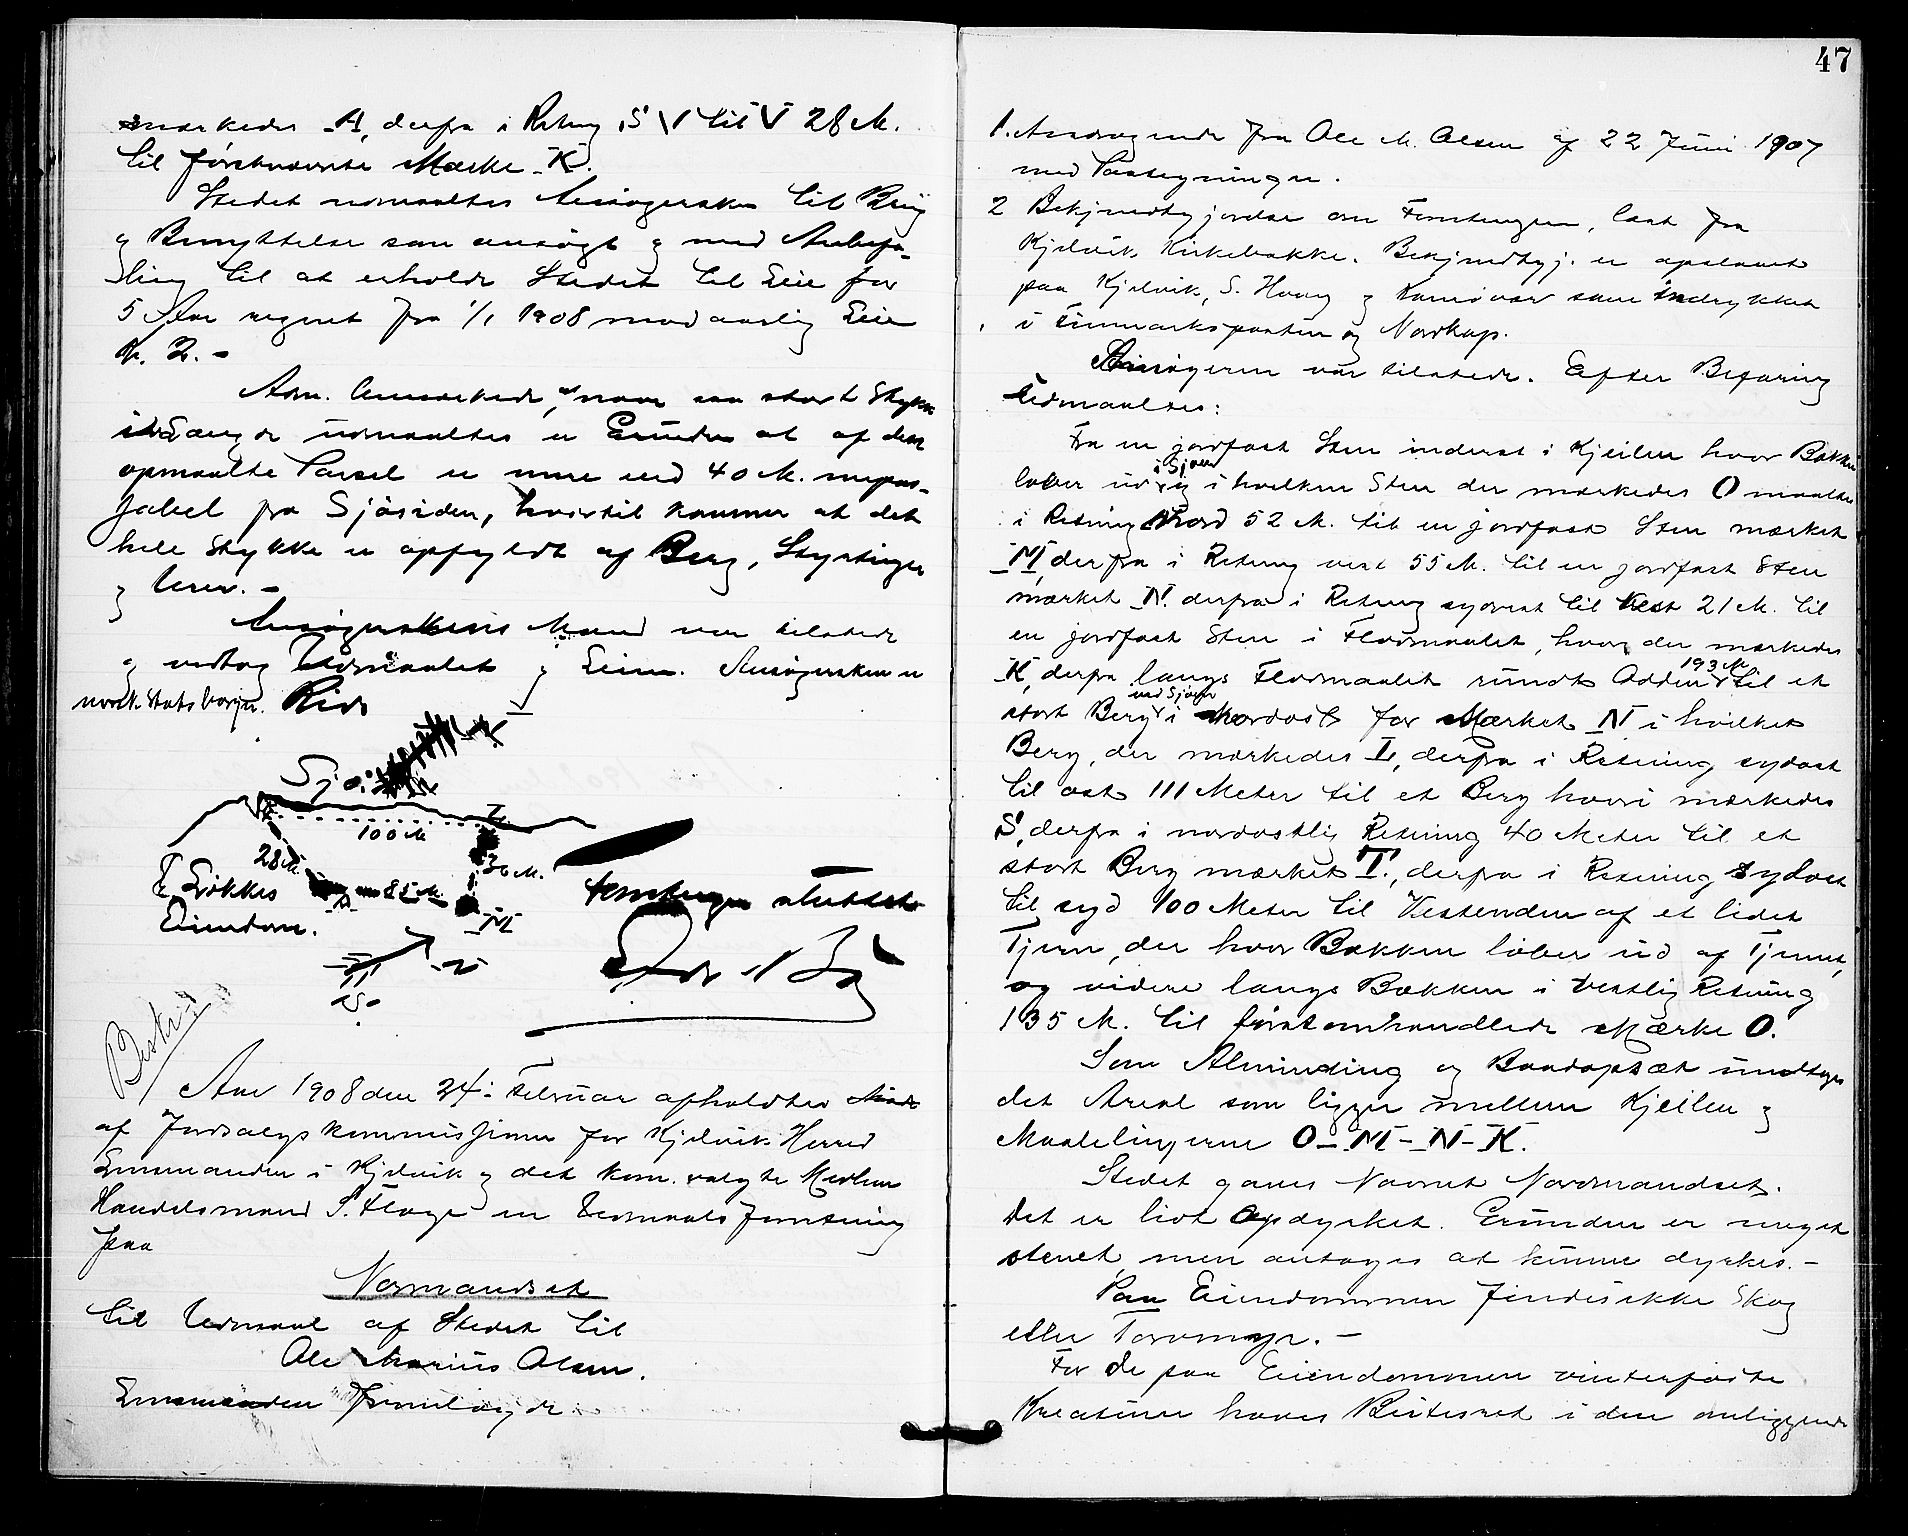 mærkedes A, derfra i Retng S V til V 28 M.
til førstnævnte Mærke K.
Stedet udmaaltes Ansøgersken til Brug
og Benyttelse som ansøgt og med Anbefa-
ling til at erholde Stedet til Leie for
5 Aar regnet fra 1/1 1908 mod aarlig Leie
Kr. 2. -
Adm. bemærkede, at naar saa stort Stykke
i Længde udmaaltes er Grunden at af den
opmaalte Parsel er mere end 40 M. upas-
sabel fra Sjøsiden, hvortil kommer at det
hele Stykke er opfyldt af Berg, Styrtinger
og Urer. -
Ansøgerskens Mand var tilstede
og vedtog Udmaalet og Leien. Ansøgersken er
norsk Statsborger.
Sjø:
100 M
28 M.
36 M.
85 M.
Løkkes
Eiendom.
A
M
N
V
S
Forretngen sluttet
Aar 1908 den 24: Februar afholdtes
af Jordsalgskommissionen for Kjelvik Herred
Lensmanden i Kjelvik og det kom. valgte Medlem
Handelsmand S. Floge en Udmaalsforretning
paa
Normandset
til Udmaal af Stedet til
Ole Marius Olsen.
Lensmanden fremlagde
47
1. Andragende fra Ole M. Olsen af 22 Juni 1907
med Paategninger.
2 Bekjendtgjørelse om Forretngen, læst fra
Kjelvik Kirkebakke. Bekjendtgj. er opslaaet
paa Kjelvik, S. Honng og Kamøvær samt indrykket
i Finmarksposten og Nordkap.
Ansøgeren var tilstede. Efter Befaring
udmaaltes:
Fra en jordfast Sten inderst i Kjeilen hvor Bækken
i Sjøen
løber ud og i hvilken Sten der mærkedes O maaltes
i Retning Nord 52 M. til en jordfast Sten mærket
M, derfra i Retning vest 55 M. til en jordfast Sten
mærket N. derfra i Retning sydvest til Vest 21 M. til
en jordfast Sten i Flodmaalet, hvor der mærkedes
193 M
K, derfra langs Flodmaalet rundt Odden til et
ved Sjøen
stort Berg i Nordost for Mærket N i hvilket
Berg, der mærkedes L, derfra i Retning sydost
til ost 111 Meter til et Berg hvori mærkedes
S, derfra i nordostlig Retning 40 Meter til et
stort Berg mærket T., derfra i Retning sydost
til syd 100 Meter til Vestenden af et lidet
Tjern, der hvor Bækken løber ud af Tjernet,
og videre langs Bækken i Vestlig Retning
135 M. til førstomhandlede Mærke O.
Som Alminding og Baadopsæt undtages
det Areal som ligger mellem Kjeilen og
Maalelingerne O - M - N - K.
Stedet gaves Navnet Nordmandset.
Det er lidt Opdyrket. Grunden er meget
stenet, men antages at kunne dyrkes. -
Paa Eiendommen findes ikke Skog
eller Torvmyr. -
For de paa Eiendommen vinterfødte
Kreaturer haves Beitesret i den omliggende